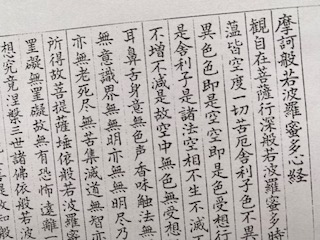 摩訶般若波羅蜜多心経
観自在菩薩行深般若波羅蜜多時
蘊皆空度一切苦厄舎利子色不異
異色色即是空空即是色受想行
是舎利子是諸法空相不生不滅
不増不減是故空中無色無受想
耳鼻舌身意無色声香味触法無
無意識界無無明亦無無明尽乃
亦無老死尽無苦集滅道無智亦
所得故菩提薩埵依般若波羅
罣礙無罣礙故無有恐怖遠離
想究竟涅槃三世諸佛依般若波